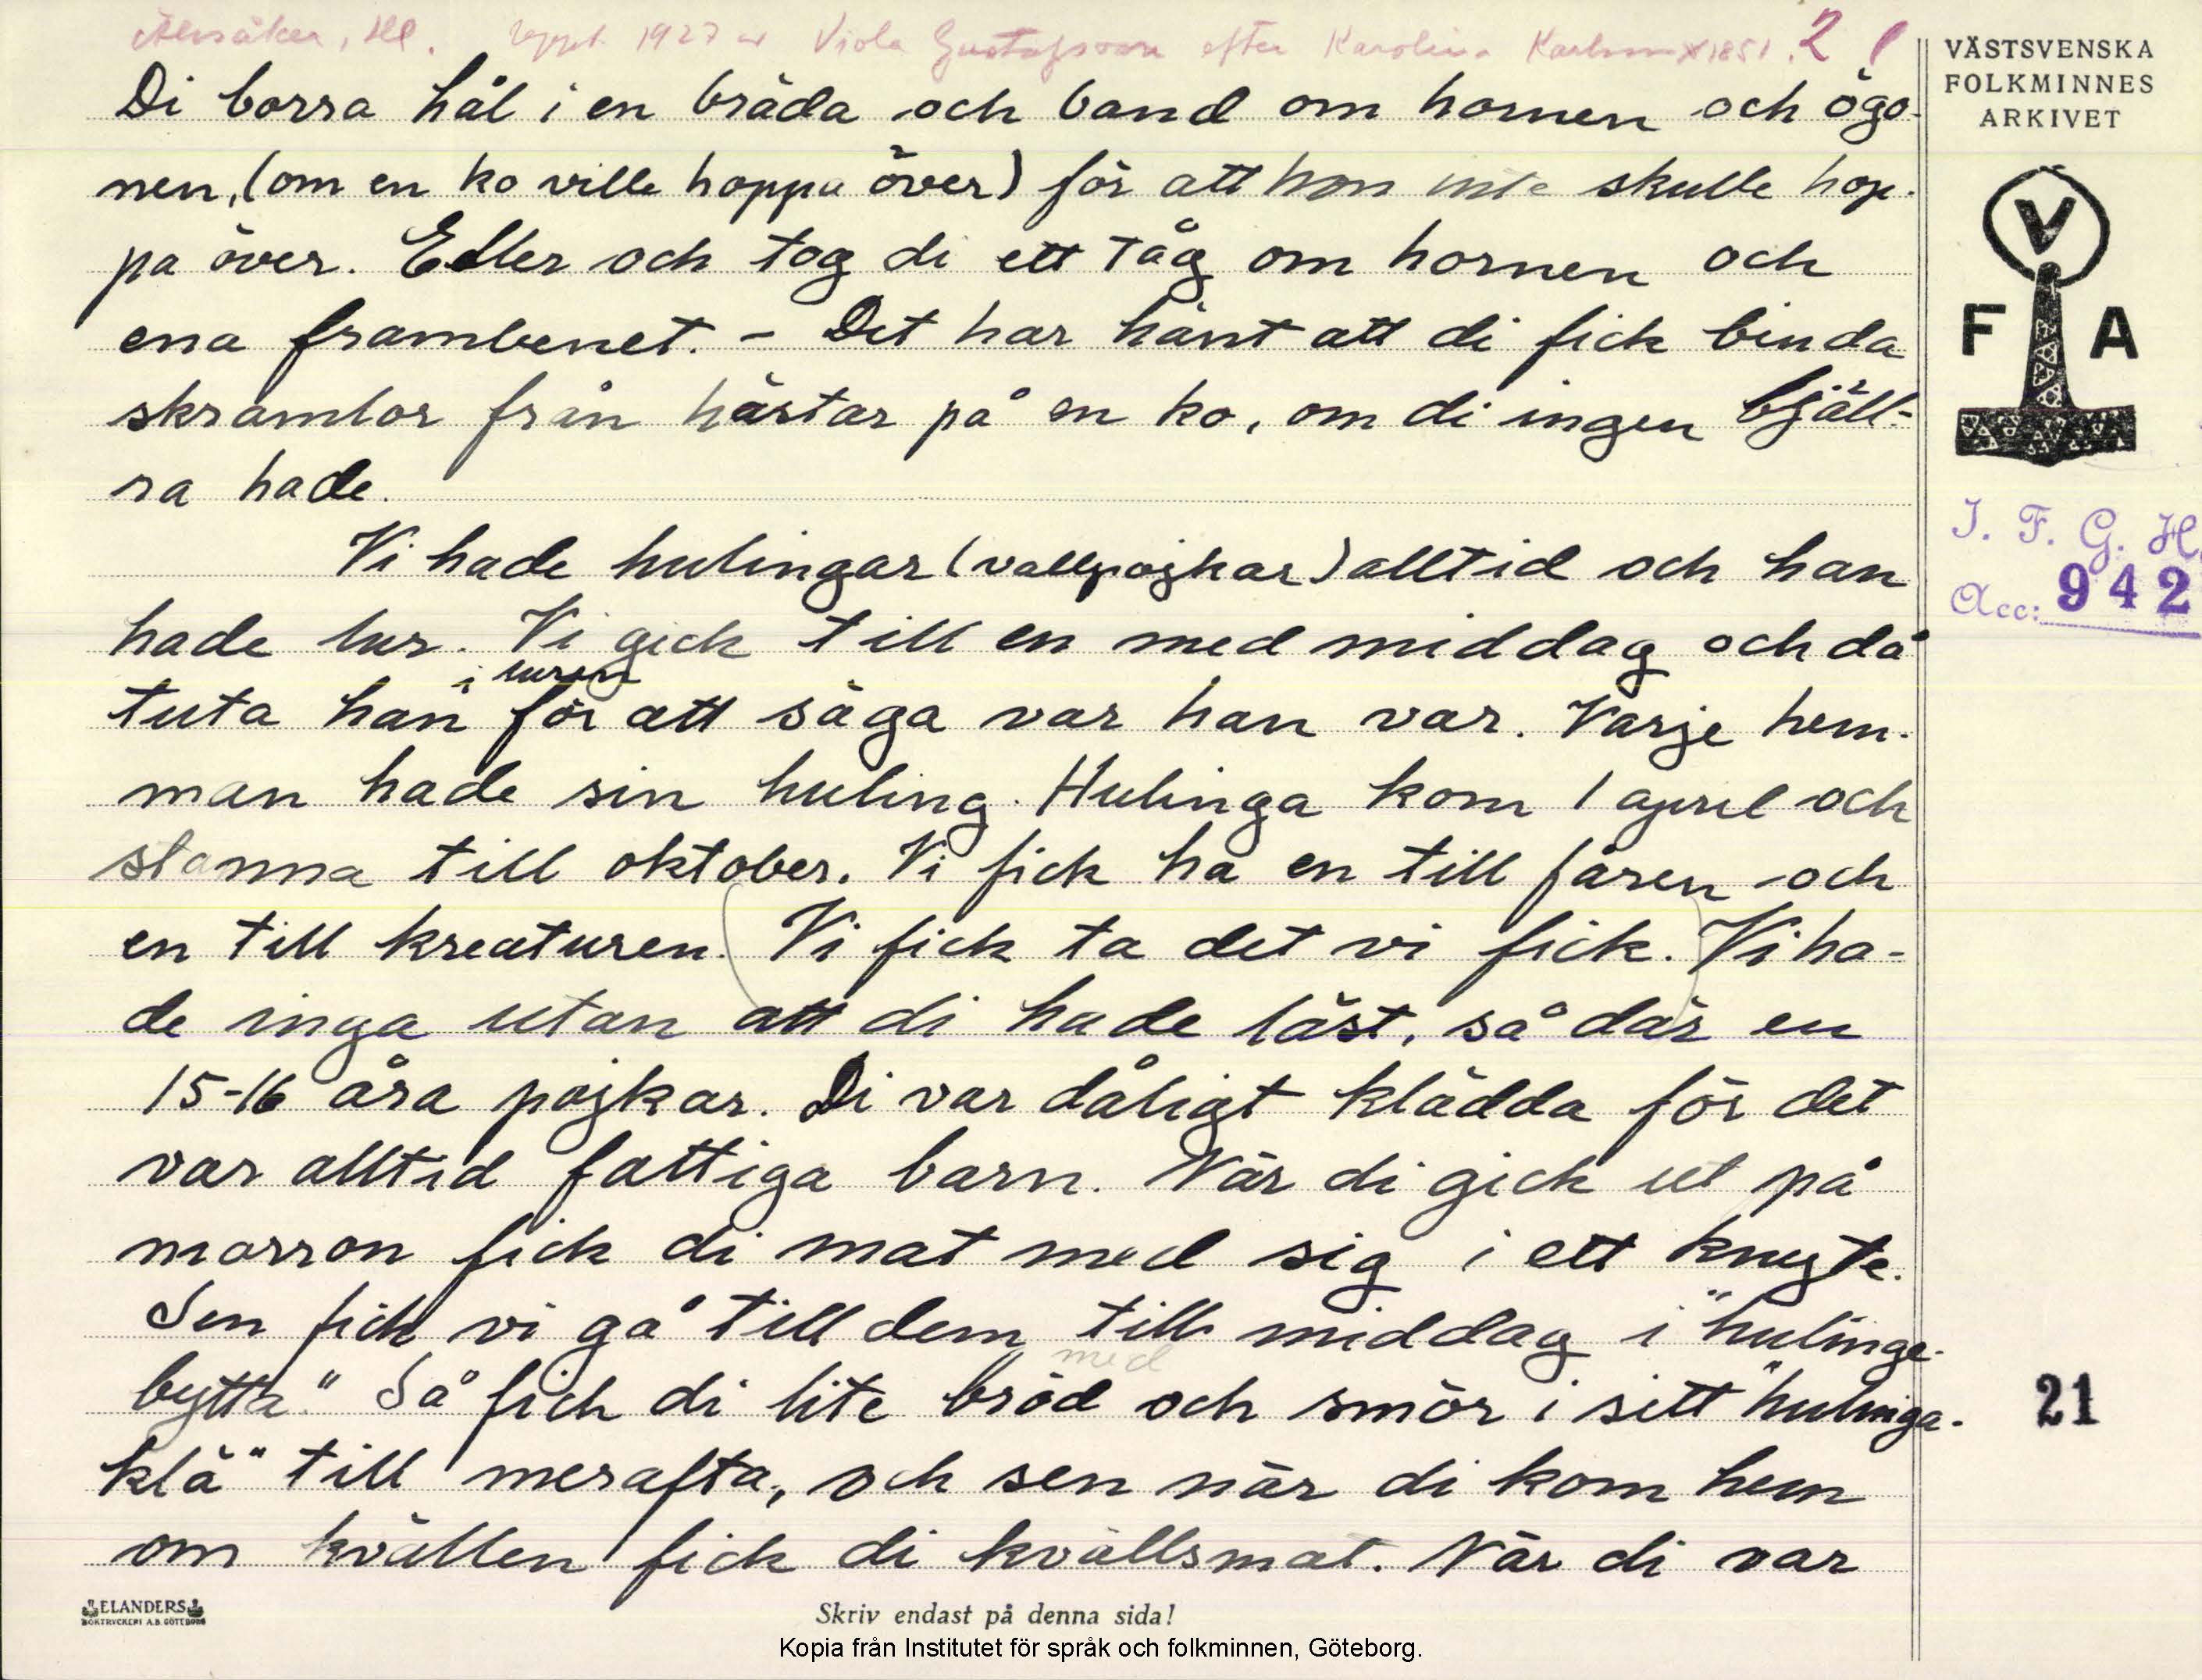 Älvsåker, Hl. Uppt. 1927 av Viola Gustafsson efter Karolina Karlsson 1851. 2
Di borra hål i en bräda och band om hornen och ögo-
nen, (om en ko ville hoppa över) för att hon inte skulle hop-
pa över. Eller och tog di ett tåg om hornen och
ena frambenet. - Det har hänt att di fick binda
skramlor från hästar på en ko, om di ingen bjäll-
ra hade.
Vi hade hulingar (vallpojkar) alltid och han
hade lur. Vi gick till en med middag och då
i luren
tuta han för att säga var han var. Varje hem-
man hade sin huling. Hulinga kom 1 april och
stanna till oktober. Vi fick ha en till fåren och
en till kreaturen. Vi fick ta det vi fick. Vi ha-
de inga utan att di hade läst, så där en
15-16 åra pojkar. Di var dåligt klädda för det
var alltid fattiga barn. När di gick ut på
morron fick di mat med sig i ett knyte.
Sen fick vi gå till dem till middag i "hulinge-
med
bytta." Så fick di lite bröd och smör i sitt "hulinga-
klä" till merafta, och sen när di kom hem
om kvällen fick di kvällsmat. När di var
VÄSTSVENSKA
FOLKMINNES
ARKIVET
V
F A
I. F. G. H.
Acc: 942
21
ELANDERS
BOKTRYCKERI A.B. GÖTEBORG
Skriv endast på denna sida!
Kopia från Institutet för språk och folkminnen, Göteborg.